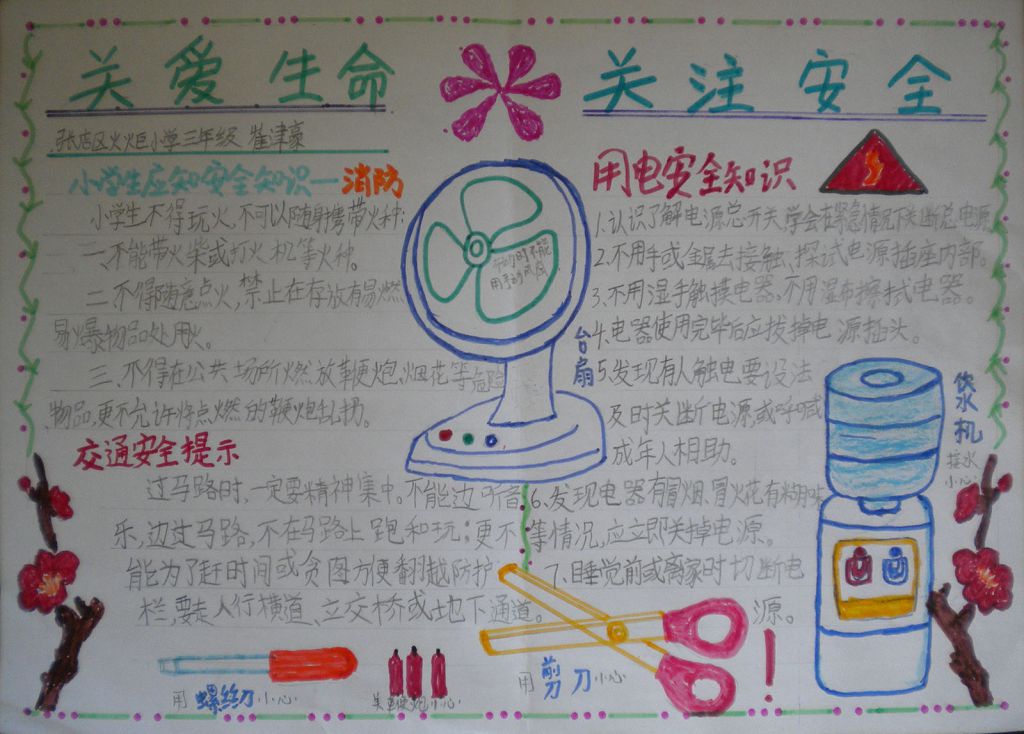 关爱生命
关注安全
张店区火炬小学三年级 崔津豪
小学生应知安全知识—消防
小学生不得玩火,不可以随身携带火种:
一、不能带火柴或打火机等火种。
二、不得随意点火,禁止在存放有易燃
易爆物品处用火。
三、不得在公共场所燃放鞭炮、烟花等危险
物品,更不允许将点燃的鞭炮乱扔。
交通安全提示
过马路时,一定要精神集中。不能边听音
乐,边过马路,不在马路上跑和玩;更不
能为了赶时间或贪图方便翻越防护
栏,要走人行横道、立交桥或地下通道。
用电安全知识
1.认识了解电源总开关,学会在紧急情况下关断总电源
2.不用手或金属去接触、探试电源插座内部。
3.不用湿手触摸电器。不用湿布擦拭电器。
4.电器使用完毕后应拔掉电源插头。
5.发现有人触电要设法
及时关断电源,或呼喊
成年人相助。
6.发现电器有冒烟、冒火花、有糊味
等情况,应立即关掉电源。
7.睡觉前或离家时切断电
源。
开动时不能
用手动风扇
台扇
饮水机
接水
小心
用螺丝刀小心
鞭炮小心
用剪刀小心